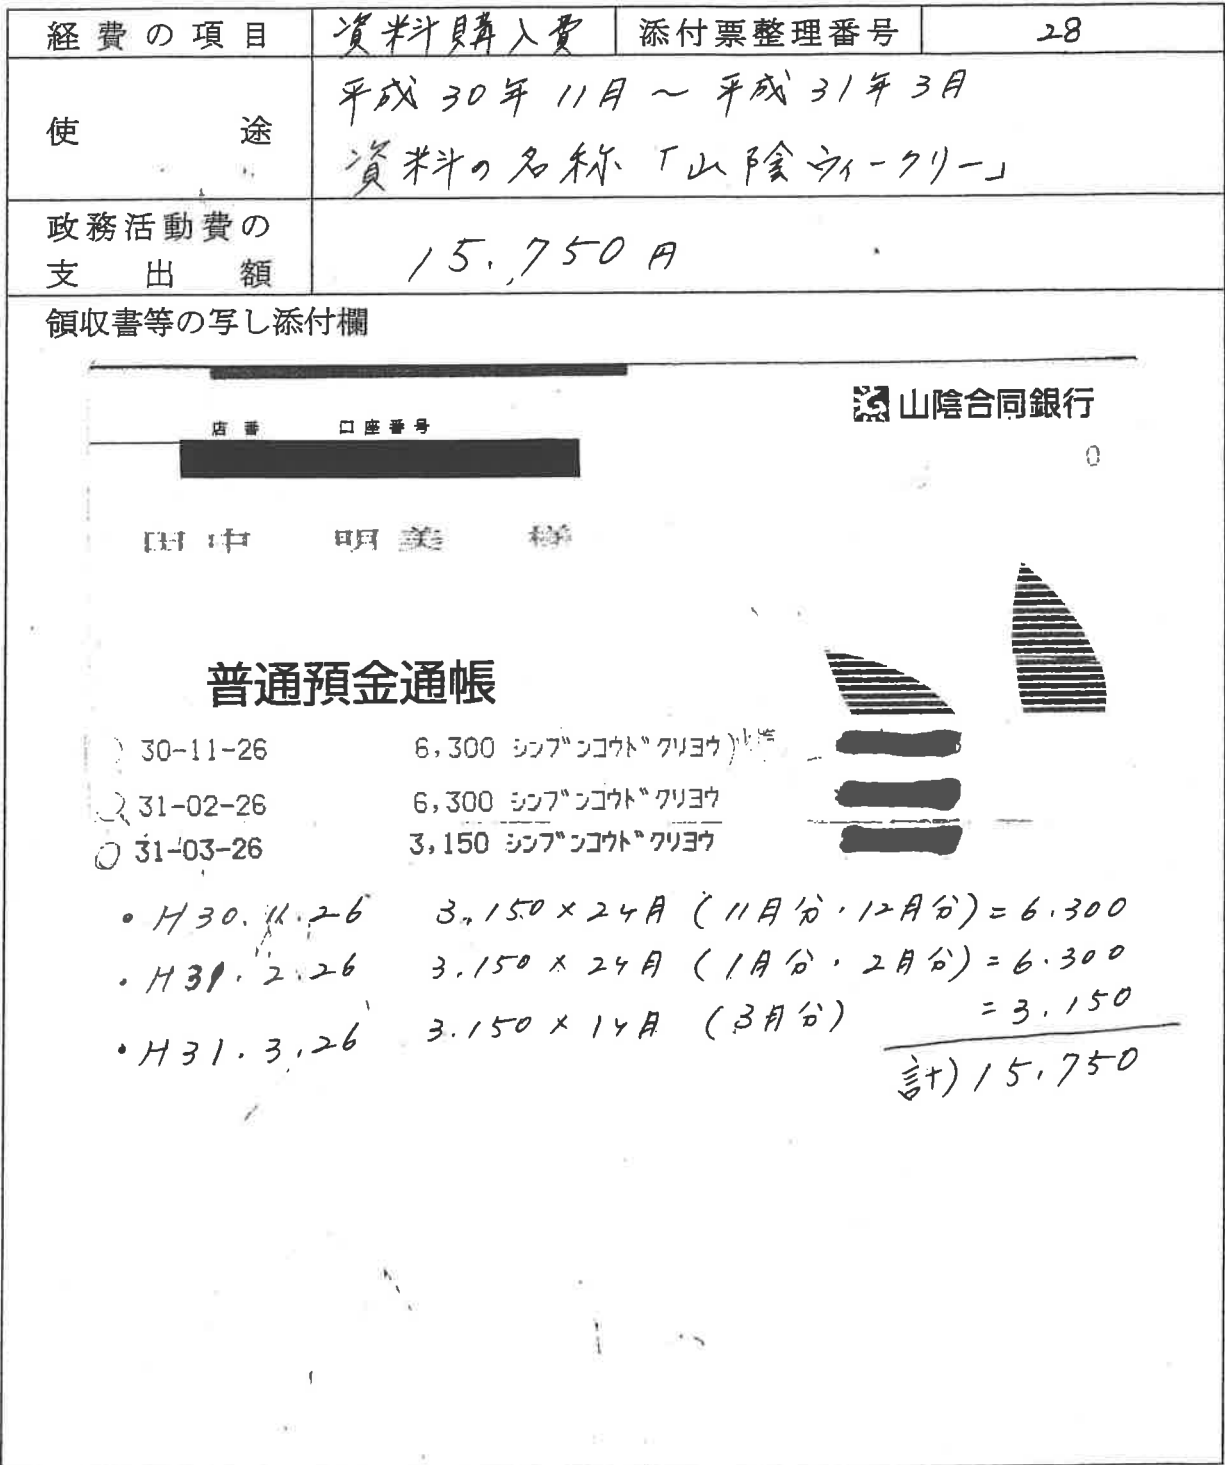 経費の項目 資料購入費 添付票整理番号 28
使途 平成30年11月～平成31年3月
資料の名称「山陰ウィークリー」
政務活動費の
支出額 15,750円
領収書等の写し添付欄
山陰合同銀行
店番 口座番号
0
田中 明美 様
普通預金通帳
30-11-26 6,300 シンブンコウドクリヨウ
31-02-26 6,300 シンブンコウドクリヨウ
31-03-26 3,150 シンブンコウドクリヨウ
・H30.11.26 3.150×2ヶ月(11月分・12月分)=6.300
・H31.2.26 3.150×2ヶ月(1月分・2月分)=6.300
・H31.3.26 3.150×1ヶ月(3月分) =3.150
計)15.750